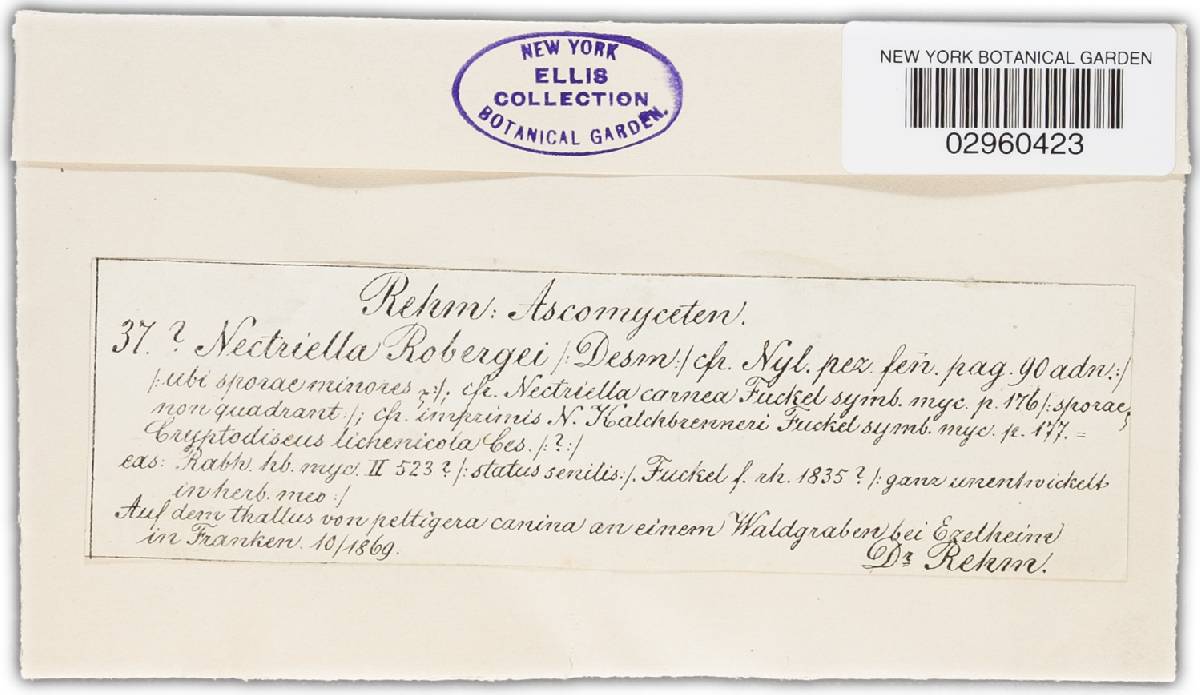 NEW YORK
ELLIS
COLLECTION
BOTANICAL GARDEN.
NEW YORK BOTANICAL GARDEN
02960423
Rehm: Ascomyceten.
37. ? Nectriella Robergei /: Desm :/ cfr. Nyl. pez. fen̄. pag. 90 adn. :/
/: ubi sporae minores ? :/; cfr. Nectriella carnea Fuckel symb. myc. p. 176 /: sporae
non quadrant :/; cfr. imprimis N. Kalchbrenneri Fuckel symb. myc. p. 177. =
Cryptodiscus lichenicola Ces. /: ? :/
eas: Rabh. hb. myc. II 523 ? /: status senilis :/. Fuckel f. rh. 1835 ? /: ganz unentwickelt
in herb. meo :/
Auf dem thallus von peltigera canina an einem Waldgraben bei Ezelheim
in Franken. 10/1869.
Dr Rehm.